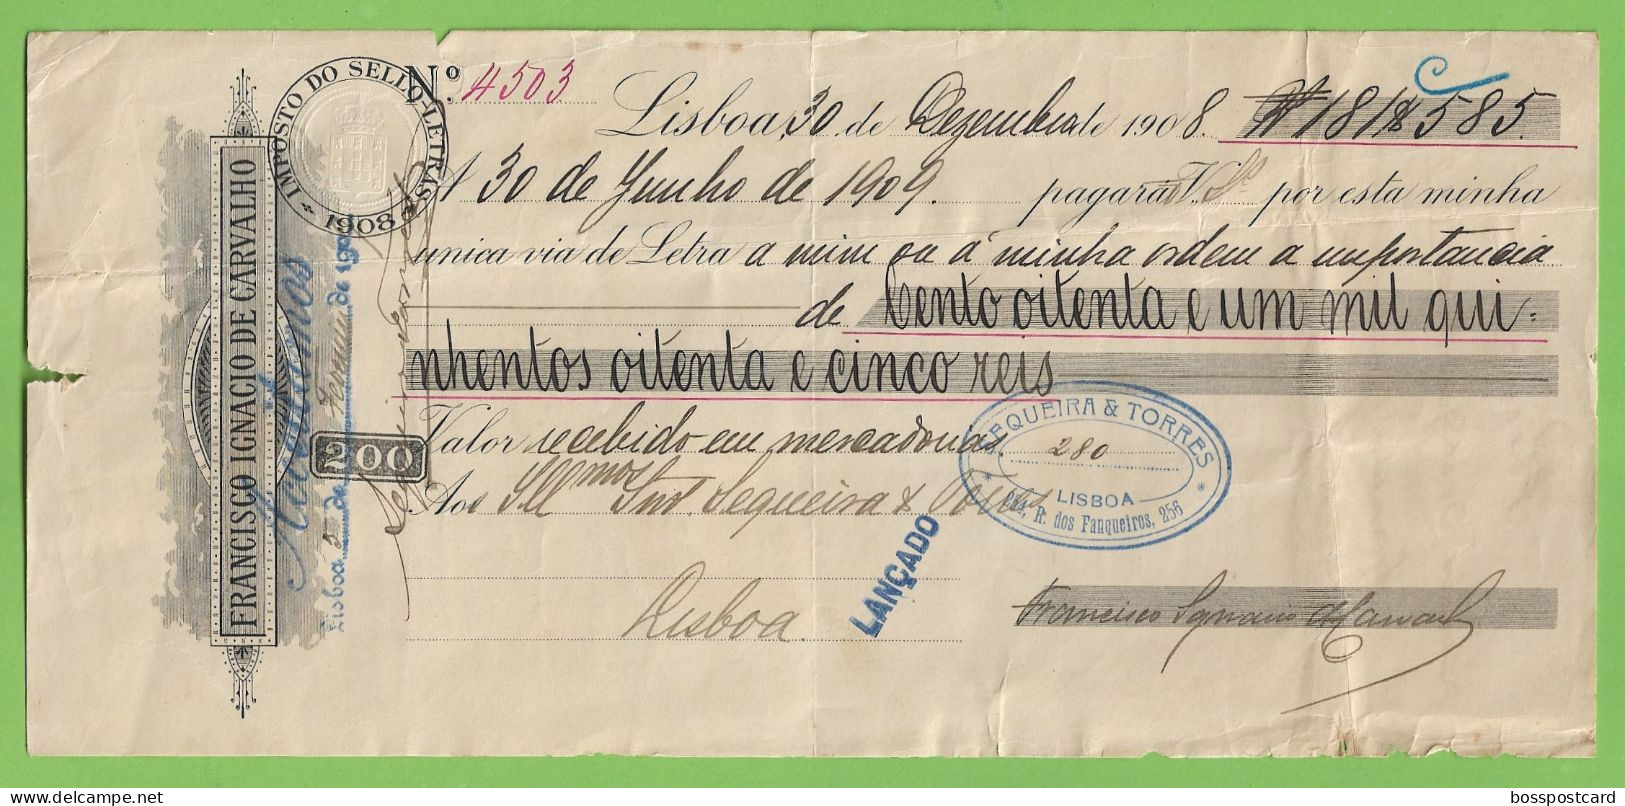 IMPOSTO DO SELLO-LETRAS
* 1908 *
FRANCISCO IGNACIO DE CARVALHO
200
Nº 4503
Lisboa, 30 de Dezembro de 1908. 181$585
A 30 de Junho de 1909. pagará V. Sª por esta minha
unica via de Letra a mim ou á minha ordem a importancia
de Cento oitenta e um mil qui-
nhentos oitenta e cinco reis
Valor recebido em mercadorias.
Aos Illmos Snrs. Sequeira & Torres
Lisboa.
SEQUEIRA & TORRES
280
LISBOA
R. dos Fanqueiros, 256
LANÇADO
Francisco Ignacio de Carvalho
Acceitamos
Lisboa 5 de de 190
bosspostcard